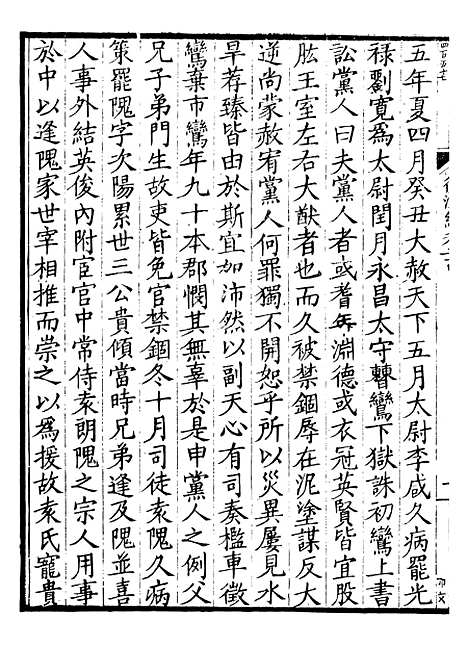 五年夏四月癸丑大赦天下五月太尉李咸久病罷光
祿劉寬爲太尉閏月永昌太守曹鸞下獄誅初鸞上書
訟黨人曰夫黨人者或耆年淵德或衣冠英賢皆宜股
肱王室左右大猷者也而久被禁錮辱在泥塗謀反大
逆尚蒙赦宥黨人何罪獨不開恕乎所以災異屢見水
旱荐臻皆由於斯宜如沛然以副天心有司奏檻車徵
鸞棄市鸞年九十本郡憫其無辜於是申黨人之例父
兄子弟門生故吏皆免官禁錮冬十月司徒袁隗久病
策罷隗字次陽累世三公貴傾當時兄弟逢及隗並喜
人事外結英俊內附宦官中常侍袁朗隗之宗人用事
於中以逢隗家世宰相推而崇之以爲援故袁氏寵貴